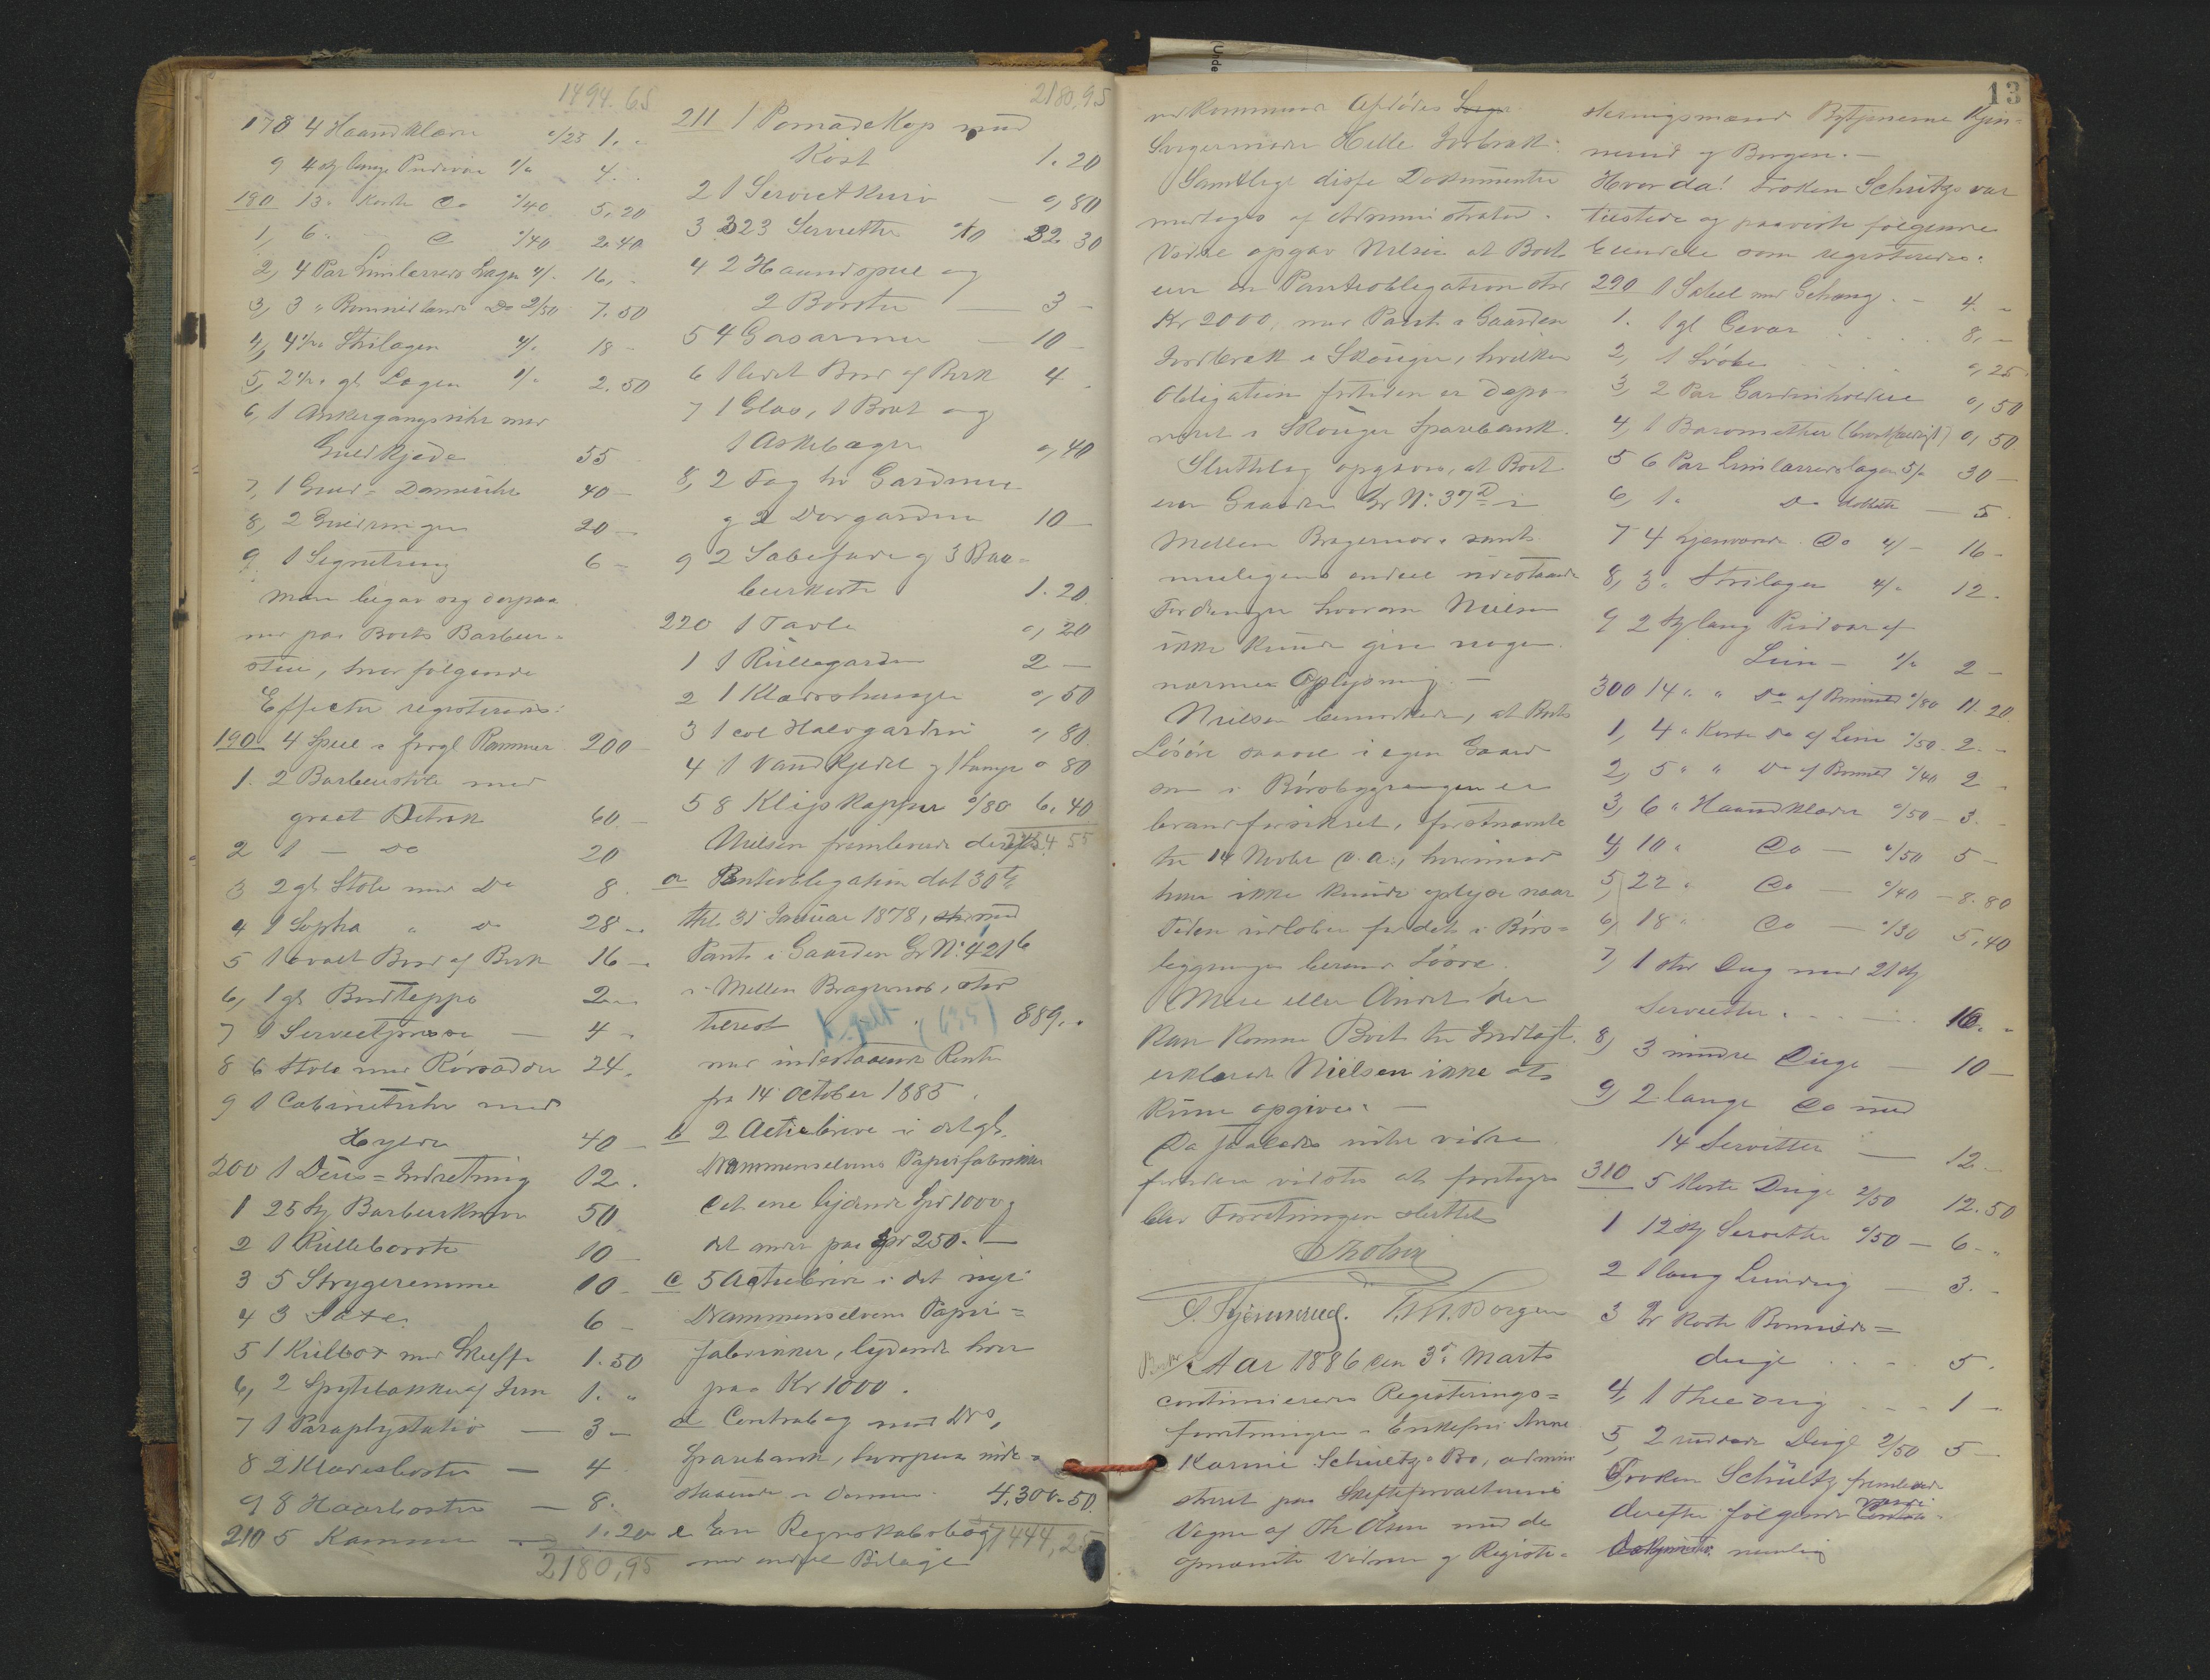 1494.65
178 4 Haandklæder 0/25 1. -
9 4 Stk lange Pudevar 1/- 4. -
180 13 - korte Do 0/40 5.20
1, 6 - Do 0/40 2.40
2, 4 Par Linlærreds Lagen 4/- 16, -
3, 3 " Bomuldlærreds Do 2/50 7.50
4, 4 1/2 Strilagen 4/- 18 -
5, 2 1/2 gl Lagen 1/- 2.50
6, 1 Ankergangsuhr med
Guldkjede 55
7, 1 Guld = Dameuhr 40 -
8, 2 Guldringer 20 -
9, 1 Signetring 6 -
Man begav sig derpaa
ned paa Boets Barbeer-
stue, hvor følgende
Effecter registreredes:
190 4 Speil i forgl Rammer 200 -
1. 2 Barbeerstole med
graat Betræk 60. -
2 1 - do 20
3 2 gl Stole med Do 8.
4 1 Sopha " do 28 -
5 1 ovalt Bord af Birk 16 -
6, 1 gl Bordteppe 2 -
7 1 Servietpresse - 4 -
8 6 Stole med Rørsæder 24.
9 1 Cabinetuhr med
Hylde 40 -
200 1 Indretning 12.
1 25 Stk Barbeerknive 50
2 1 Rullebørste 10 -
3 5 Strygeremme 10 -
4 3 Saxe 6 -
5 1 Kulbox med Skuffe 1.50
6, 2 Spyttebakker af Jern 1. "
7 1 Paraplystativ - 3 -
8 2 Klædesbørster - 4
9 8 Haarbørster - 8.
210 5 Kamme - 1.20
2180,95
2180,95
211 1 Pomadekop med
Kost 1.20
2 1 Servietkurv - 0,80
3 323 Servietter 0/10 32 30
4 2 Haandspeil og
2 Børster - 3 -
5 4 Gasarme - 10 -
6 1 Bord af Birk 4 -
7 1 Glas, 1 Bræt og
1 Askebæger 0,40
8, 2 Fag hv Gardiner
og 2 Dørgardiner 10 -
9 2 Sæbefade og 3 Bar-
beerkoste 1.20
220 1 Tavle 0,20
1 1 Rullegardin 2 -
2 1 Klædeshænger 0,50
3 1 col Halvgardin 0,80
4 1 Vandkjedel og 1 Lampe 0 80
5 8 Klipskapper 0/80 6.40
Nielsen fremleverede derefter
a Panteobligation dat 30te
thl. 31 Januar 1878, med
Pant i Gaarden Gr No: 421b
i Mellem Bragernes, stor
tilrest 889. "
(635)
med indestaaende Renter
fra 14 October 1885.
b 2 Actiebreve i det gl.
Drammenselvens Papirfabrikker
det ene lydende Spd 1000 og
det andet paa Spd 250. -
c 5 Actiebreve i det nye
Drammenselvens Papir=
fabrikker, lydende hver
paa Kr 1000.
d Contrabog med Drs,
Sparebank, hvorpaa inde-
staaende 4,300.50
e En Regnskabsbog
med endeel Bilage
7444,25
13
vedkommende Afdødes
Svigermoder Helle Jordbræk.
Samtlige disse Dokumenter
modtoges af Administrator.
Videre opgav Nielsen at Boet
eier en Panteobligation stor
Kr 2000, med Pant i Gaarden
Jordbræk i Skouger, hvilken
Obligation fortiden er depo-
neret i Skouger Sparebank.
Sluttelig opgaves, at Boet
eier Gaarden Gr No: 37d i
Mellem Bragernes samt
muligens endeel udestaaende
Fordringer hvorom Nielsen
ikke kunde give nogen
nærmere Oplysning. -
Nielsen bemærkede, at Boets
Løsøre saavel i egen Gaard
som i Børsbygningen er
brandforsikret, førstnævnte
til 14 Novbr d.a., hvorimod
han ikke kunde oplyse naar
Tiden udløber for det i Børs-
bygningen værende Løsøre.
Mere eller Andet der
kan komme Boet til Indtægt.
erklærede Nielsen ikke at
kunne opgive. -
Da saaledes intet videre
fandtes at foretage
blev Forretningen sluttet
Th Olsen
S. Kjennerud. T. M. Borgen
Aar 1886 den 3die Marts
continueredes Registrerings=
forretningen i Enkefru Anne
Karine Schültz's Bo, admini-
streret paa Skifteforvalterens
Vegne af Th Olsen med de
opnævnte Vidner og Registre-
sterings mænd Bytjenerne Kjen-
nerud og Borgen. -
Hvor da! Frøken Schültz var
tilstede og paaviste følgende
Eiendele som registreredes.
290 1 Sabel med Gehæng. - 4. -
1. 1 gl Gevær 8, -
2, 1 0,25
3, 2 Par Gardinholdere 0,50
4, 1 Baromether (brøstfældigt) 0,50
5 6 Par Linlærredslagen 5/- 30 -
6, 1 " Do - 5
7 4 Do 4/- 16 -
8, 3 " Strilagen 4/- 12 -
9 2 Stk lang Pudevar af
Lin - 1/- 2 -
300 14 " " Do af Bomuld 0/80 11.20
1, 4 " Korte Do af Lin 0/50 2. -
2, 5 " " Do af Bomuld 0/40 2 -
3, 6 " Haandklæder 0/50 - 3. -
4, 10 " Do - 0/50 5 -
5, 22 " Do - 0/40 - 8.80
6, 18 " Do - 0/30 5,40
7, 1 stor Dug med 21 Stk
Servietter. 16. -
8, 3 mindre Duge - 10 -
9, 2 lange Do med
14 Servietter - 12 -
310 5 korte Duge 2/50 12.50
1 12 Stk Servietter 0/50 - 6 -
2 1 lang Lindug - 3. -
3 2 korte Bomulds=
duge 5.
4, 1 Theedug 1 -
5, 2 runde Duge 2/50 5 -
Frøken Schültz fremleverede
derefter følgende
nemlig